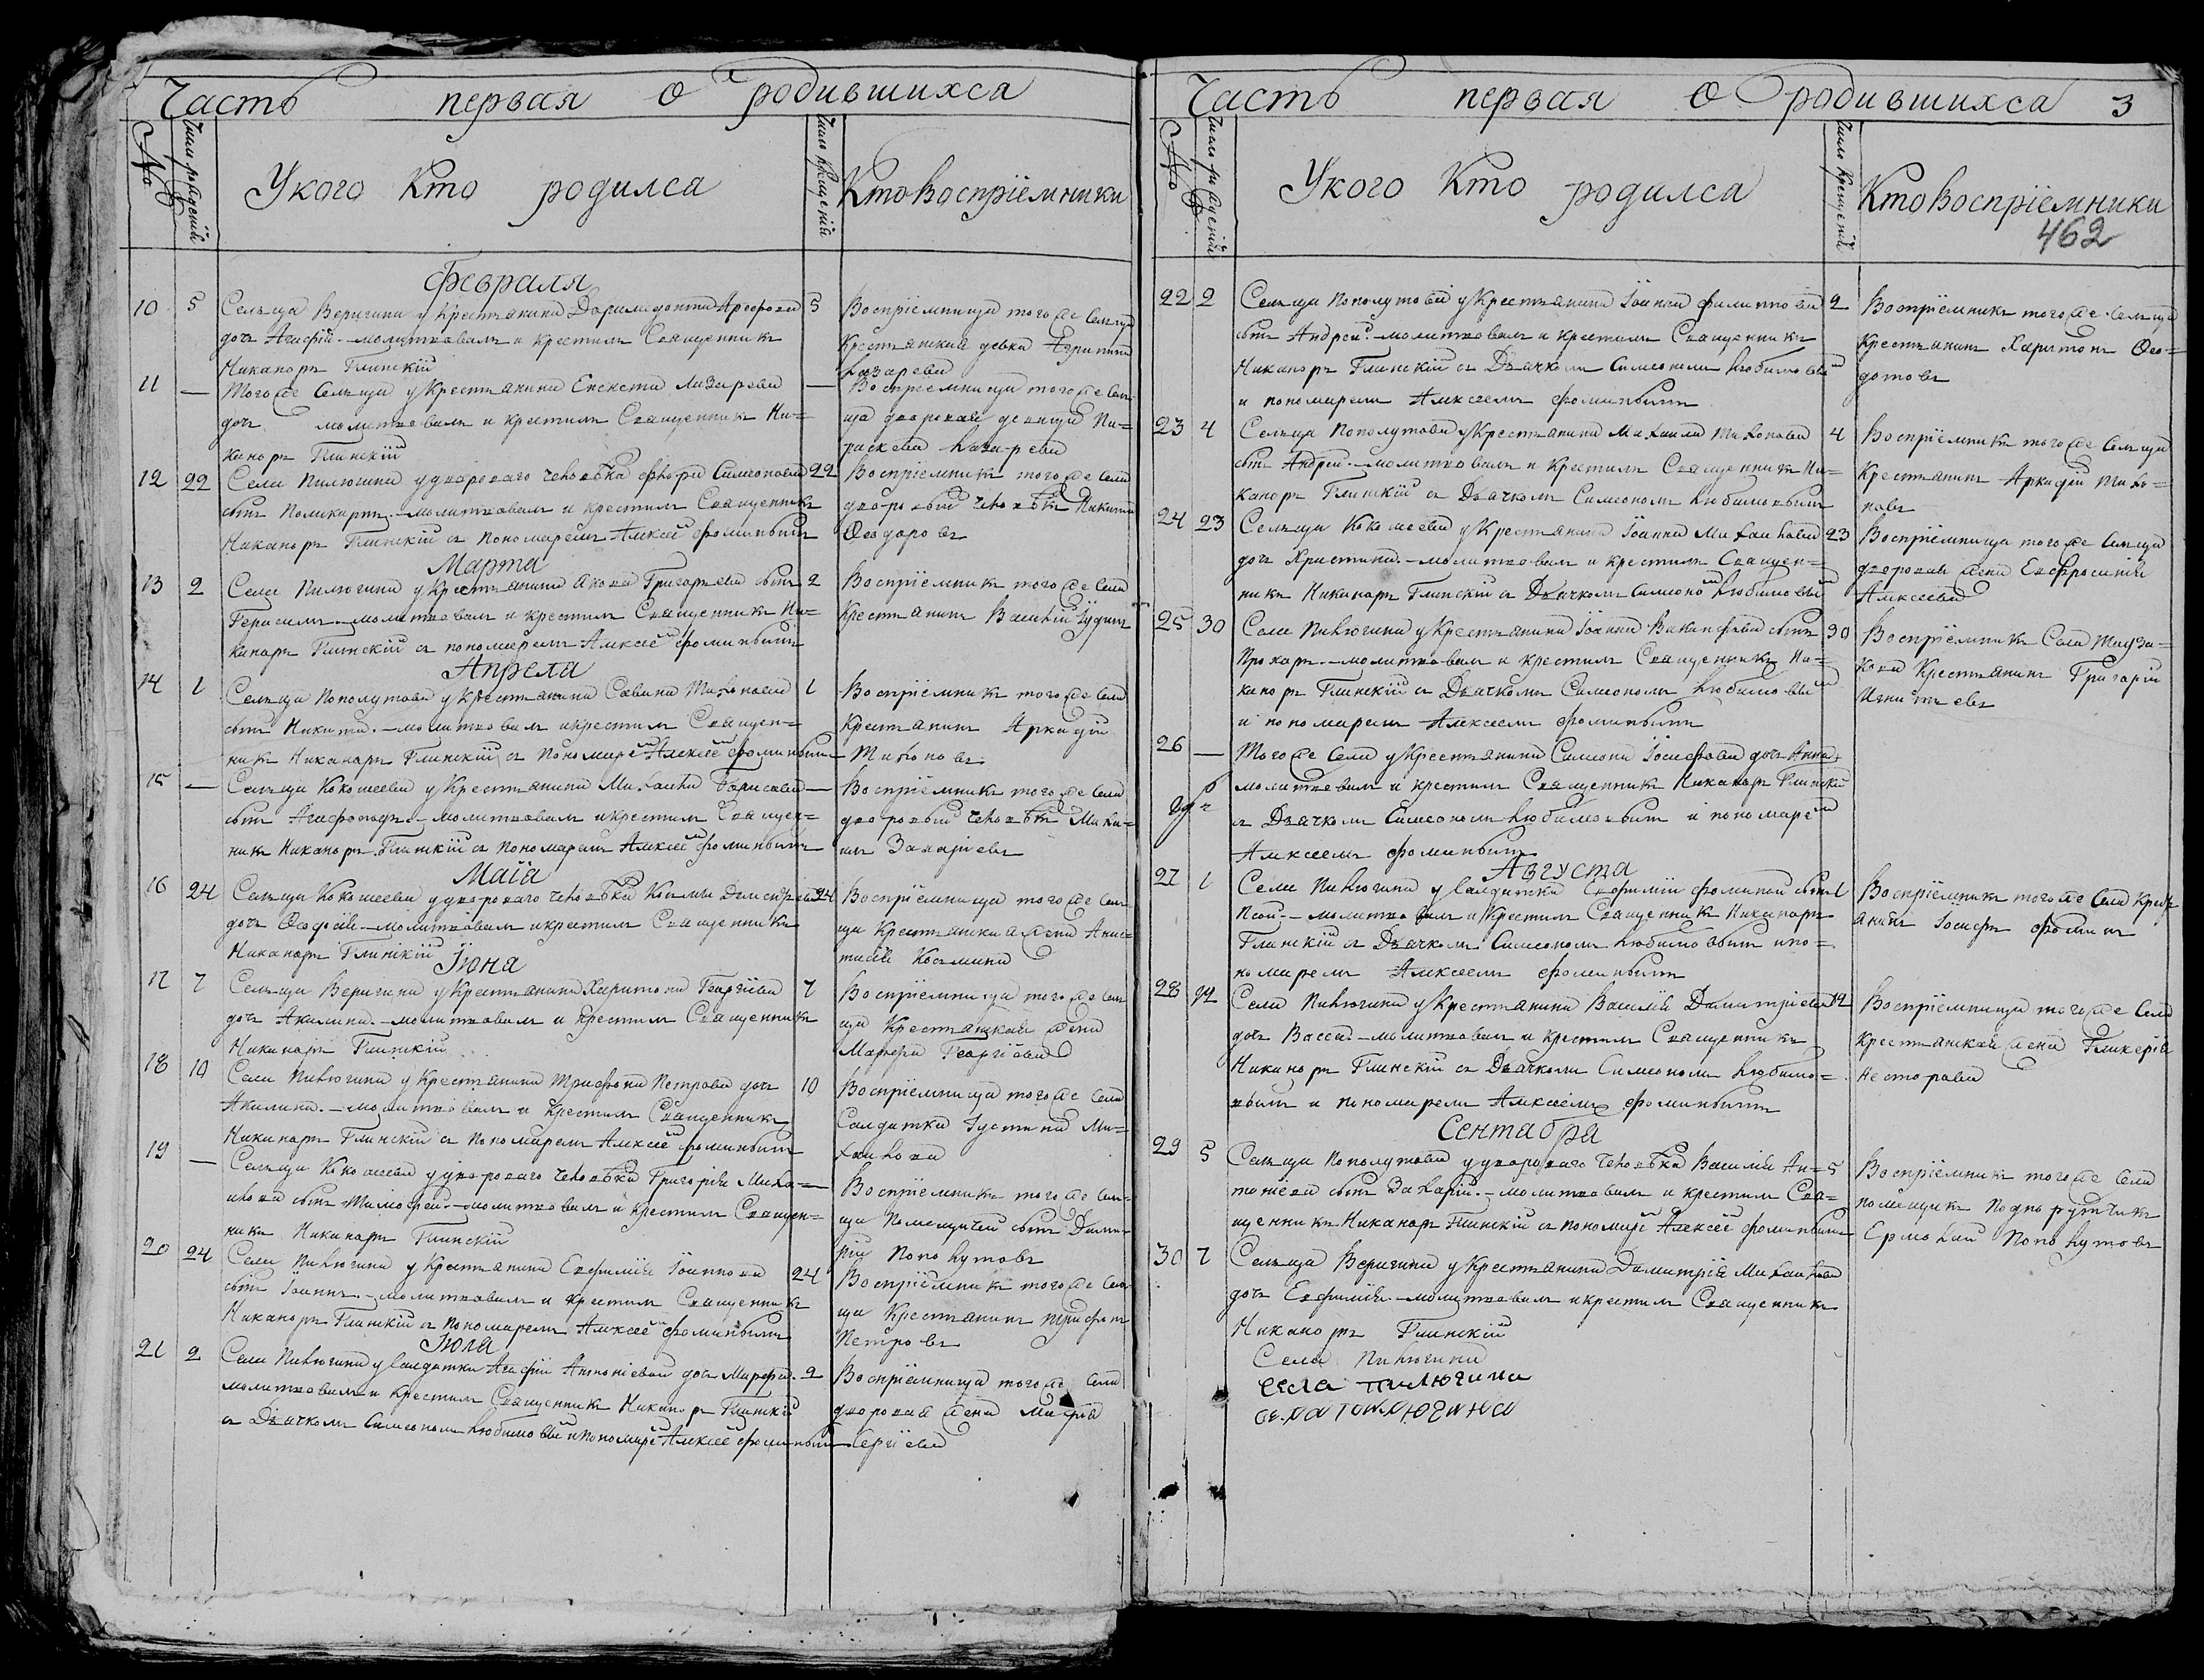 Часть первая О родившихса
№
Число рождений
У кого Кто родилса
Число крещений
Кто Воспріемники
Февраля
10 5 Сельца Веригина у Крестьянина Доримедонта Ареѳова 5
дочь Агафія. – молитвовалъ и крестилъ Священникъ
Никаноръ Глинскій
Воспріемница того же сельца
Крестьянская девка Агрипина
Лазарева
11 — Того же сельца у Крестьянина Лазарева —
дочь молитвовалъ и крестилъ Священникъ Ни=
каноръ Глинскій
Воспріемница того же сель-
ца дворовая девица Па=
раскева Лазарева
12 22 Села Пилюгина у двороваго человѣка Флора Симеонова 22
сынъ Поликарпъ. – молитвовалъ и крестилъ Священникъ
Никаноръ Глинскій съ пономаремъ Алексеемъ Фоминымъ
Воспріемникъ того же села
дворовый человѣкъ Никита
Ѳеодоровъ
Марта
13 2 Села Пилюгина у Крестьянина Акова Григорьева сынъ 2
Герасимъ. – молитвовалъ и крестилъ Священникъ Ни=
каноръ Глинскій съ пономаремъ Алексеемъ Фоминымъ
Воспріемникъ того же села
Крестьянинъ Василій Іудинъ
Апреля
14 1 Сельца Пополутова у Крестьянина Савина Тихонова 1
сынъ Никита. – молитвовалъ и крестилъ Священ=
никъ Никаноръ Глинскій съ пономаремъ Алексеемъ Фоминымъ
Воспріемникъ того же села
Крестьянинъ Аркадій
Тихоновъ
15 — Сельца Кокошеева у Крестьянина Михаила Борисова —
сынъ Агафоподъ. – молитвовалъ и крестилъ Священ=
никъ Никаноръ Глинскій съ пономаремъ Алексеемъ Фоминымъ
Воспріемникъ того же села
дворовый человѣкъ Миха=
илъ Захаріевъ
Маіа
16 24 Сельца Кокошеева у двороваго человѣка Козьмы Дементьева 24
дочь Ѳеодосія – молитвовалъ и крестилъ Священникъ
Никаноръ Глинскій
Воспріемница того же сель
ца Крестьянская жена Анис=
тасія Козьмина
Іюна
17 7 Сельца Веригина у Крестьянина Харитона Георгіева 7
дочь Акилина. – молитвовалъ и крестилъ Священникъ
Никаноръ Глинскій
Воспріемница того же сель
ца Крестьянская жена
Марѳа Георгіева
18 10 Села Пилюгина у Крестьянина Трифона Петрова дочь 10
Акилина. – молитвовалъ и крестилъ Священникъ
Никаноръ Глинскій съ пономаремъ Алексеемъ Фоминымъ
Воспріемница того же села
Солдатка Іустина Ми=
хаилова
19 — Сельца Кокошеева у двороваго человѣка Григорія Миха= —
илова сынъ Тимофей. – молитвовалъ и крестилъ Священ=
никъ Никаноръ Глинскій
Воспріемникъ того же сель
ца Помещичей сынъ Димит
рій Пополутовъ
20 24 Села Пилюгина у Крестьянина Евфимія Іоаннова 24
сынъ Іоаннъ. – молитвовалъ и крестилъ Священникъ
Никаноръ Глинскій съ пономаремъ Алексеемъ Фоминымъ
Воспріемникъ того же сель
ца Крестьянинъ Трифонъ
Петровъ
Іюла
21 2 Села Пилюгина у солдатки Агафіи Антоніевой дочь Марфа. 2
молитвовалъ и крестилъ Священникъ Никаноръ Глинскій
съ Дьячкомъ Симеономъ Любимовымъ и пономаремъ Алексеемъ Фоминымъ
Воспріемница того же села
дворовая жена Марфа
Сергіева
Часть первая О родившихса 3
№
Число рождений
У кого Кто родилса
Число крещений
Кто Воспріемники
462
22 2 Сельца Пополутова у Крестьянина Іоанна Филиппова 2
сынъ Андрей. – молитвовалъ и крестилъ Священникъ
Никаноръ Глинскій съ Дьячкомъ Симеономъ Любимовымъ
и пономаремъ Алексеемъ Фоминымъ
Воспріемникъ того же сельца
Крестьянинъ Харитонъ Ѳео=
дотовъ
23 4 Сельца Пополутова у Крестьянина Михаила Тихонова 4
сынъ Андрей. – молитвовалъ и крестилъ Священникъ Ни=
каноръ Глинскій съ Дьячкомъ Симеономъ Любимовымъ
Воспріемникъ того же сельца
Крестьянинъ Аркадій Тихо=
новъ
24 23 Сельца Кокошеева у Крестьянина Іоанна Михаилова 23
дочь Христина. – молитвовалъ и крестилъ Священ=
никъ Никаноръ Глинскій съ Дьячкомъ Симеономъ Любимовымъ
Воспріемница того же сельца
дворовая жена Евфросинія
Алексеева
25 30 Села Пилюгина у Крестьянина Іоанна сынъ 30
Прохоръ. – молитвовалъ и крестилъ Священникъ Ни=
каноръ Глинскій съ Дьячкомъ Симеономъ Любимовымъ
и пономаремъ Алексеемъ Фоминымъ
Воспріемникъ Села
Крестьянинъ Григорій
Игнатьевъ
26 — Того же села у Крестьянина Симеона Іосифова дочь Анна
молитвовалъ и крестилъ Священникъ Никаноръ Глинскій
съ Дьячкомъ Симеономъ Любимовымъ и пономаремъ
Алексеемъ Фоминымъ
Августа
27 1 Села Пилюгина у солдатки Евфиміи Фоминой сынъ 1
Псой. – молитвовалъ и крестилъ Священникъ Никаноръ
Глинскій съ Дьячкомъ Симеономъ Любимовымъ и по=
номаремъ Алексеемъ Фоминымъ
Воспріемникъ того же села Кресть
янинъ Іосифъ Фоминъ
28 12 Села Пилюгина у Крестьянина Василія Димитріева 12
дочь Васса. – молитвовалъ и крестилъ Священникъ
Никаноръ Глинскій съ Дьячкомъ Симеономъ Любимо=
вымъ и пономаремъ Алексеемъ Фоминымъ
Воспріемница того же села
Крестьянская жена Гликерія
Несторова
Сентабра
29 5 Сельца Пополутова у двороваго человѣка Василія Ан= 5
тоніева сынъ Захарій. – молитвовалъ и крестилъ Свя=
щенникъ Никаноръ Глинскій съ пономаремъ Алексеемъ Фоминымъ
Воспріемникъ того же села
помещикъ Подпорутчикъ
Ермолай Пополутовъ
30 7 Сельца Веригина у Крестьянина Димитрія Михаилова
дочь Евфимія. – молитвовалъ и крестилъ Священникъ
Никаноръ Глинскій
Села Пилюгина
села пилюгина
села пилюгина